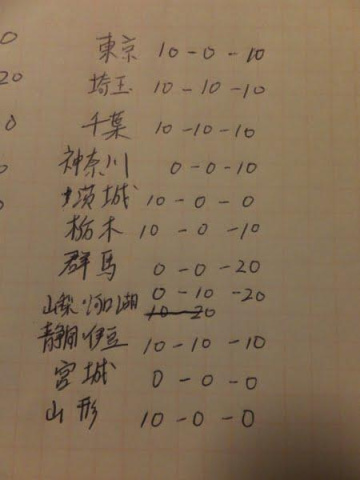 東京 10-0-10
埼玉 10-10-10
千葉 10-10-10
神奈川 0-0-10
茨城 10-0-0
栃木 10-0-10
群馬 0-0-20
山梨・河口湖 0-10-20
10-20
静岡・伊豆 10-10-10
宮城 0-0-0
山形 10-0-0